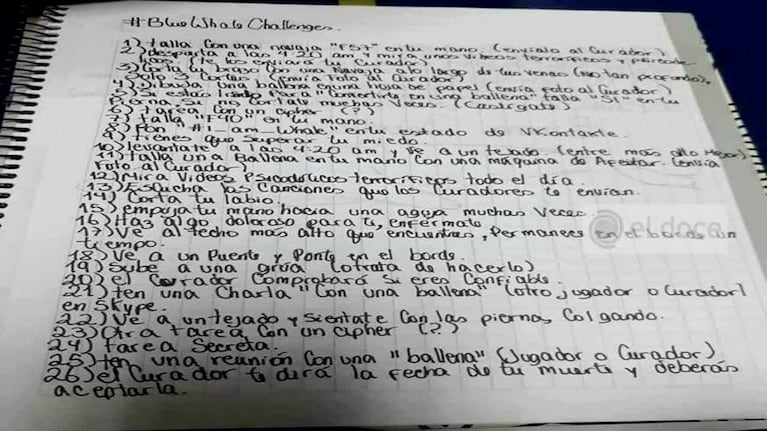 #BlueWhaleChallenges.
1) talla con una navaja "F57" en tu mano. (envíalo al Curador).
2) despierta a las 4:20 am y mira unos videos terroríficos y psicode-
licos. (te los enviará tu Curador)
3) Corta tu brazo con una Navaja a lo largo de tus venas (No tan profundo),
Solo 3 cortes. (envía foto al Curador)
4) dibuja una ballena en una hoja de papel (envía foto al Curador)
5) Si estás listo para "convertirte en una ballena" talla "SI" en tu
Pierna, si no cortate muchas veces. (Castígate)
6) tarea con un cipher (?)
7) talla "F40" en tu mano.
8) Pon "#i_am_whale" en tu estado de VKontakte.
9) tienes que superar tu miedo.
10) levantate a las 4:20 am y Ve a un tejado. (entre más alto Mejor)
11) talla una Ballena en tu mano con una máquina de Afeitar. (envía
Foto al Curador)
12) Mira Videos Psicodélicos terroríficos todo el día.
13) Escucha las Canciones que los Curadores te envían.
14) Corta tu labio.
15) empuja tu mano hacia una aguja muchas Veces.
16) Haz algo doloroso para ti, enfermate
17) Ve al techo más alto que encuentres, Permanece en el borde un
tiempo.
18) Ve a un Puente y Ponte en el borde.
19) Sube a una grúa (o trata de hacerlo)
20) el Curador Comprobará si eres Confiable.
21) ten una Charla "Con una ballena" (otro jugador o Curador)
en Skype.
22) Ve a un tejado y sientate Con las piernas Colgando.
23) Otra tarea Con un cipher (?)
24) tarea Secreta.
25) ten una reunión Con una "ballena" (Jugador o Curador)
26) el Curador te dirá la fecha de tu muerte y deberás
aceptarla.
eldoce